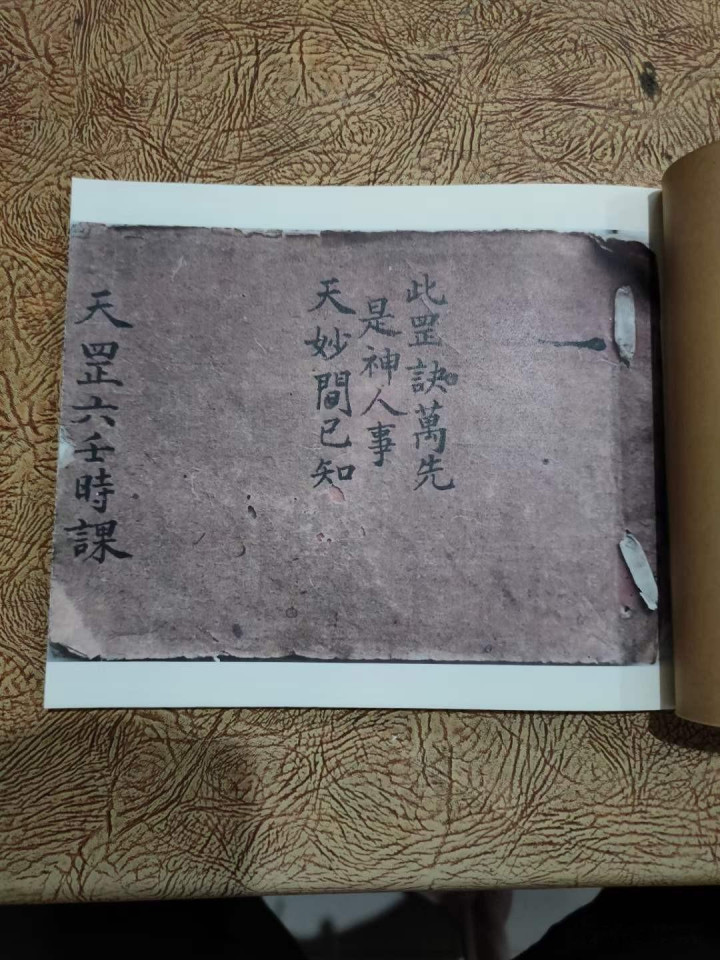 一
此罡訣萬先
是神人事
天妙間已知
天罡六壬時課